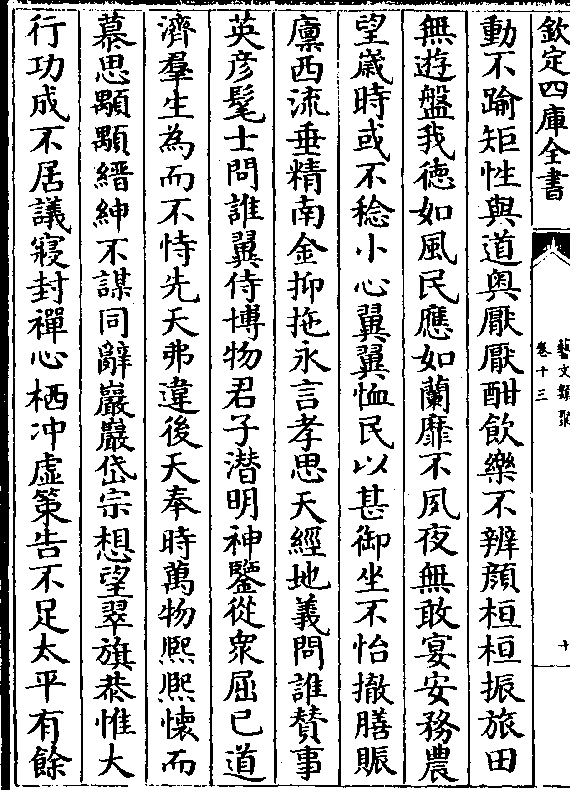 欽定四庫全書
藝文類聚
卷十三
十
動不踰矩性與道奥厭厭酣飲樂不辨顔桓桓振旅田
無遊盤我徳如風民應如蘭靡不夙夜無敢宴安務農
望嵗時或不稔小心翼翼恤民以甚御坐不怡撤膳賑
廪西流垂精南金抑拖永言孝思天經地義問誰賛事
英彦髦士問誰翼侍博物君子潜明神鑒從衆屈已道
濟羣生為而不恃先天弗違後天奉時萬物熈熈懐而
慕思顒顒縉紳不謀同辭巖巖岱宗想望翠旗恭惟大
行功成不居議寢封禪心栖冲虛策告不足太平有餘